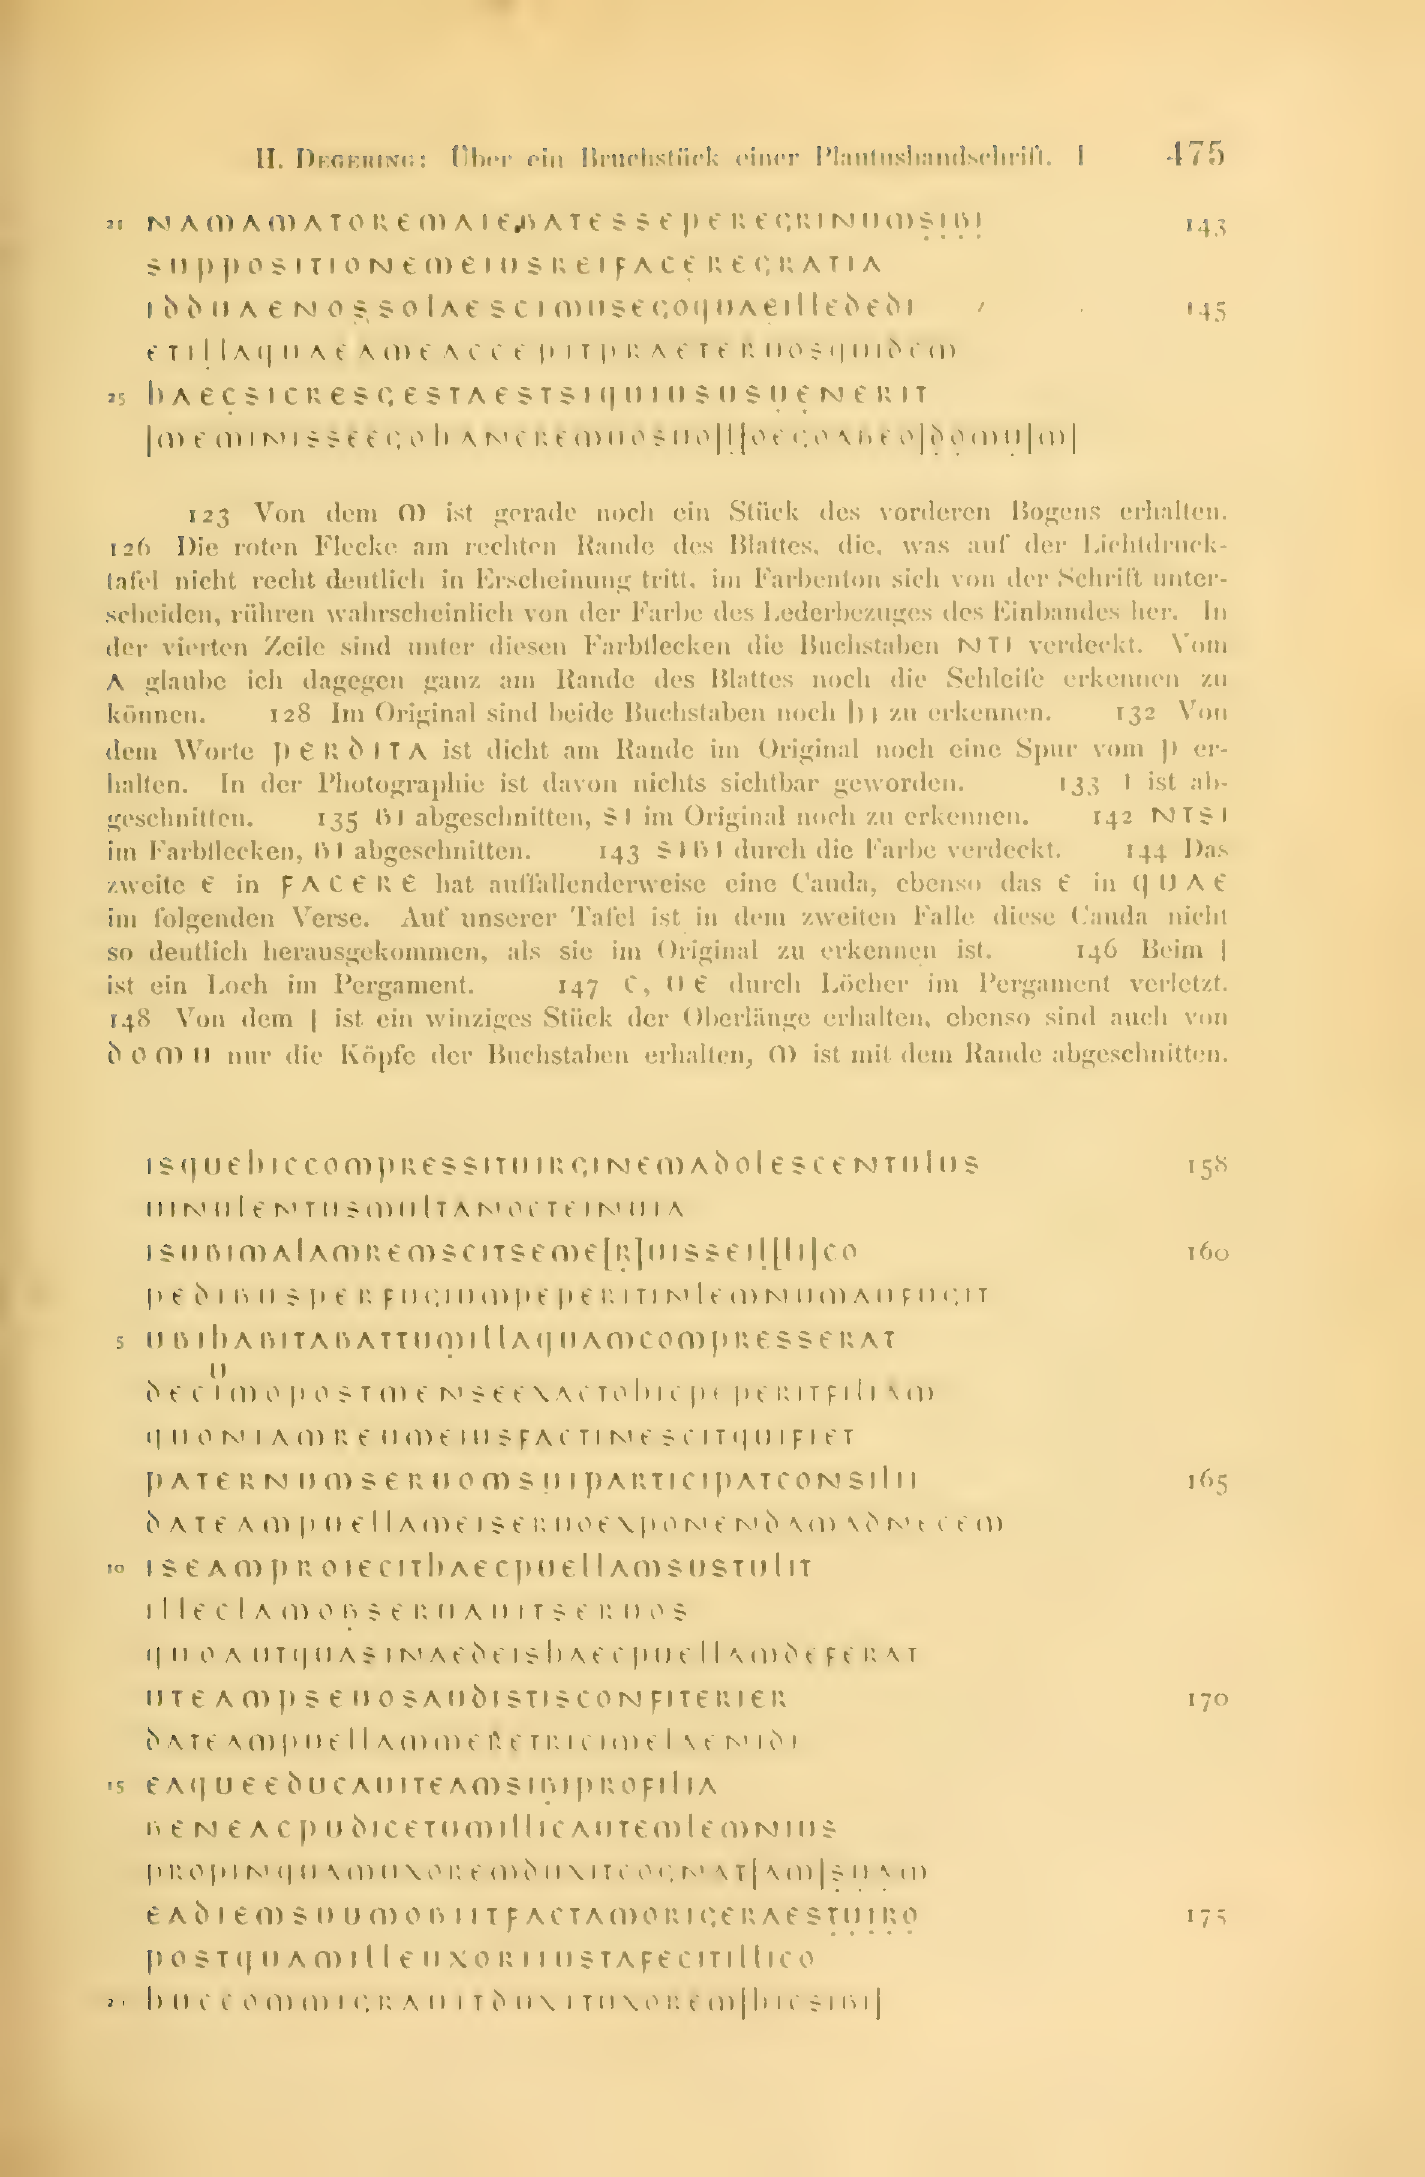 H. DEGERING: Über ein Bruchstück einer Plautushandschrift. I 475
21 NAMAMATOREMAIEBATESSEPEREGRINUMSIBI 143
SUPPOSITIONEMEIUSREIFACEREGRATIA
IDDUAENOSSOLAESCIMUSEGOQUAEILLEDEDI 145
ETILLAQUAEAMEACCEPITPRAETERUOSQUIDEM
25 HAECSICRESGESTAESTSIQUIUSUSUENERIT
[MEMINISSEEGOHANCREMUOSUO]L[OEGOABEO]DOMU[M]
123 Von dem M ist gerade noch ein Stück des vorderen Bogens erhalten.
126 Die roten Flecke am rechten Rande des Blattes, die, was auf der Lichtdruck-
tafel nicht recht deutlich in Erscheinung tritt, im Farbenton sich von der Schrift unter-
scheiden, rühren wahrscheinlich von der Farbe des Lederbezuges des Einbandes her. In
der vierten Zeile sind unter diesen Farbflecken die Buchstaben NTI verdeckt. Vom
A glaube ich dagegen ganz am Rande des Blattes noch die Schleife erkennen zu
können. 128 Im Original sind beide Buchstaben noch HI zu erkennen. 132 Von
dem Worte PERDITA ist dicht am Rande im Original noch eine Spur vom P er-
halten. In der Photographie ist davon nichts sichtbar geworden. 133 I ist ab-
geschnitten. 135 BI abgeschnitten, SI im Original noch zu erkennen. 142 NTSI
im Farbflecken, BI abgeschnitten. 143 SIBI durch die Farbe verdeckt. 144 Das
zweite E in FACERE hat auffallenderweise eine Cauda, ebenso das E in QUAE
im folgenden Verse. Auf unserer Tafel ist in dem zweiten Falle diese Cauda nicht
so deutlich herausgekommen, als sie im Original zu erkennen ist. 146 Beim L
ist ein Loch im Pergament. 147 C, UE durch Löcher im Pergament verletzt.
148 Von dem L ist ein winziges Stück der Oberlänge erhalten, ebenso sind auch von
DOMU nur die Köpfe der Buchstaben erhalten, M ist mit dem Rande abgeschnitten.
ISQUEHICCOMPRESSITUIRGINEMADOLESCENTULUS 158
UINULENTUSMULTANOCTEINUIA
ISUBIMALAMREMSCITSEME[R]UISSEIL[LI]CO 160
PEDIBUSPERFUGIUMPEPERITINLEMNUMAUFUGIT
5 UBIHABITABATTUMILLAQUAMCOMPRESSERAT
U
DECIMOPOSTMENSEEXACTOHICPEPERITFILIAM
QUONIAMREUMEIUSFACTINESCITQUIFIET
PATERNUMSERUOMSUIPARTICIPATCONSILII 165
DATEAMPUELLAMEISERUOEXPONENDAMADNECEM
10 ISEAMPROIECITHAECPUELLAMSUSTULIT
ILLECLAMOBSERUAUITSERUOS
QUOAUTQUASINAEDEISHAECPUELLAMDEFERAT
UTEAMPSEUOSAUDISTISCONFITERIER 170
DATEAMPUELLAMMERETRICIMELAENIDI
15 EAQUEEDUCAUITEAMSIBIPROFILIA
BENEACPUDICETUMILLICAUTEMLEMNIUS
PROPINQUAMUXOREMDUXITCOGNAT[AM]SUAM
EADIEMSUUMOBIITFACTAMORIGERAESTUIRO 175
POSTQUAMILLEUXORIIUSTAFECITILLICO
HUCCOMMIGRAUITDUXITUXOREM[HICSIBI]